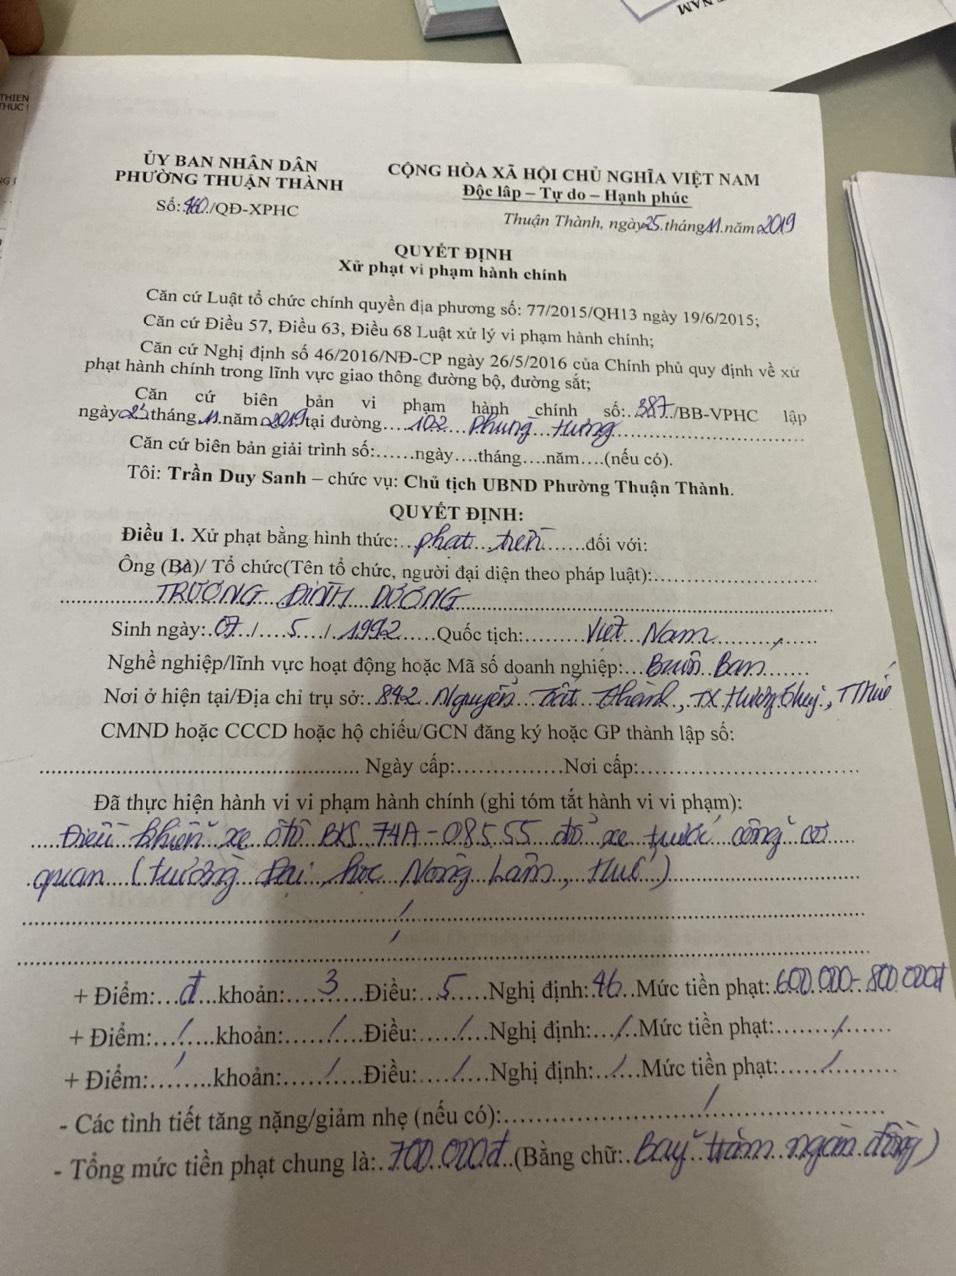 NAM
THIEN
THUC
ỦY BAN NHÂN DÂN
PHƯỜNG THUẬN THÀNH
Số: 460./QĐ-XPHC
CỘNG HÒA XÃ HỘI CHỦ NGHĨA VIỆT NAM
Độc lập – Tự do – Hạnh phúc
Thuận Thành, ngày 25.tháng 11.năm 2019
QUYẾT ĐỊNH
Xử phạt vi phạm hành chính
Căn cứ Luật tổ chức chính quyền địa phương số: 77/2015/QH13 ngày 19/6/2015;
Căn cứ Điều 57, Điều 63, Điều 68 Luật xử lý vi phạm hành chính;
Căn cứ Nghị định số 46/2016/NĐ-CP ngày 26/5/2016 của Chính phủ quy định về xử
phạt hành chính trong lĩnh vực giao thông đường bộ, đường sắt;
Căn cứ biên bản vi phạm hành chính số:..387../BB-VPHC lập
ngày 25 tháng 11.năm 2019 tại đường....102... Phùng Hưng
Căn cứ biên bản giải trình số:......ngày....tháng....năm....(nếu có).
Tôi: Trần Duy Sanh – chức vụ: Chủ tịch UBND Phường Thuận Thành.
QUYẾT ĐỊNH:
Điều 1. Xử phạt bằng hình thức:...phạt tiền......đối với:
Ông (Bà)/ Tổ chức(Tên tổ chức, người đại diện theo pháp luật):
TRƯƠNG ĐÌNH DƯƠNG
Sinh ngày:..07../....5..../.1992.....Quốc tịch:..........Việt Nam
Nghề nghiệp/lĩnh vực hoạt động hoặc Mã số doanh nghiệp:...Buôn Bán
Nơi ở hiện tại/Địa chỉ trụ sở:..842 Nguyễn Tất Thành, TX Hương Thủy, TTHuế
CMND hoặc CCCD hoặc hộ chiếu/GCN đăng ký hoặc GP thành lập số:
Ngày cấp:..............Nơi cấp:
Đã thực hiện hành vi vi phạm hành chính (ghi tóm tắt hành vi vi phạm):
Điều khiển xe ôtô BKS 74A-085.55 đỗ xe trước cổng cơ
quan (trường Đại học Nông Lâm, Huế)
+ Điểm:...đ...khoản:....3....Điều:...5.....Nghị định:.46..Mức tiền phạt:.600.000-800.000đ
+ Điểm:.../....khoản:....../...Điều:...../....Nghị định:.../..Mức tiền phạt:......../
+ Điểm:.../....khoản:....../...Điều:...../....Nghị định:.../..Mức tiền phạt:......../
- Các tình tiết tăng nặng/giảm nhẹ (nếu có):......../
- Tổng mức tiền phạt chung là:.700.000đ..(Bằng chữ:.Bảy trăm ngàn đồng)